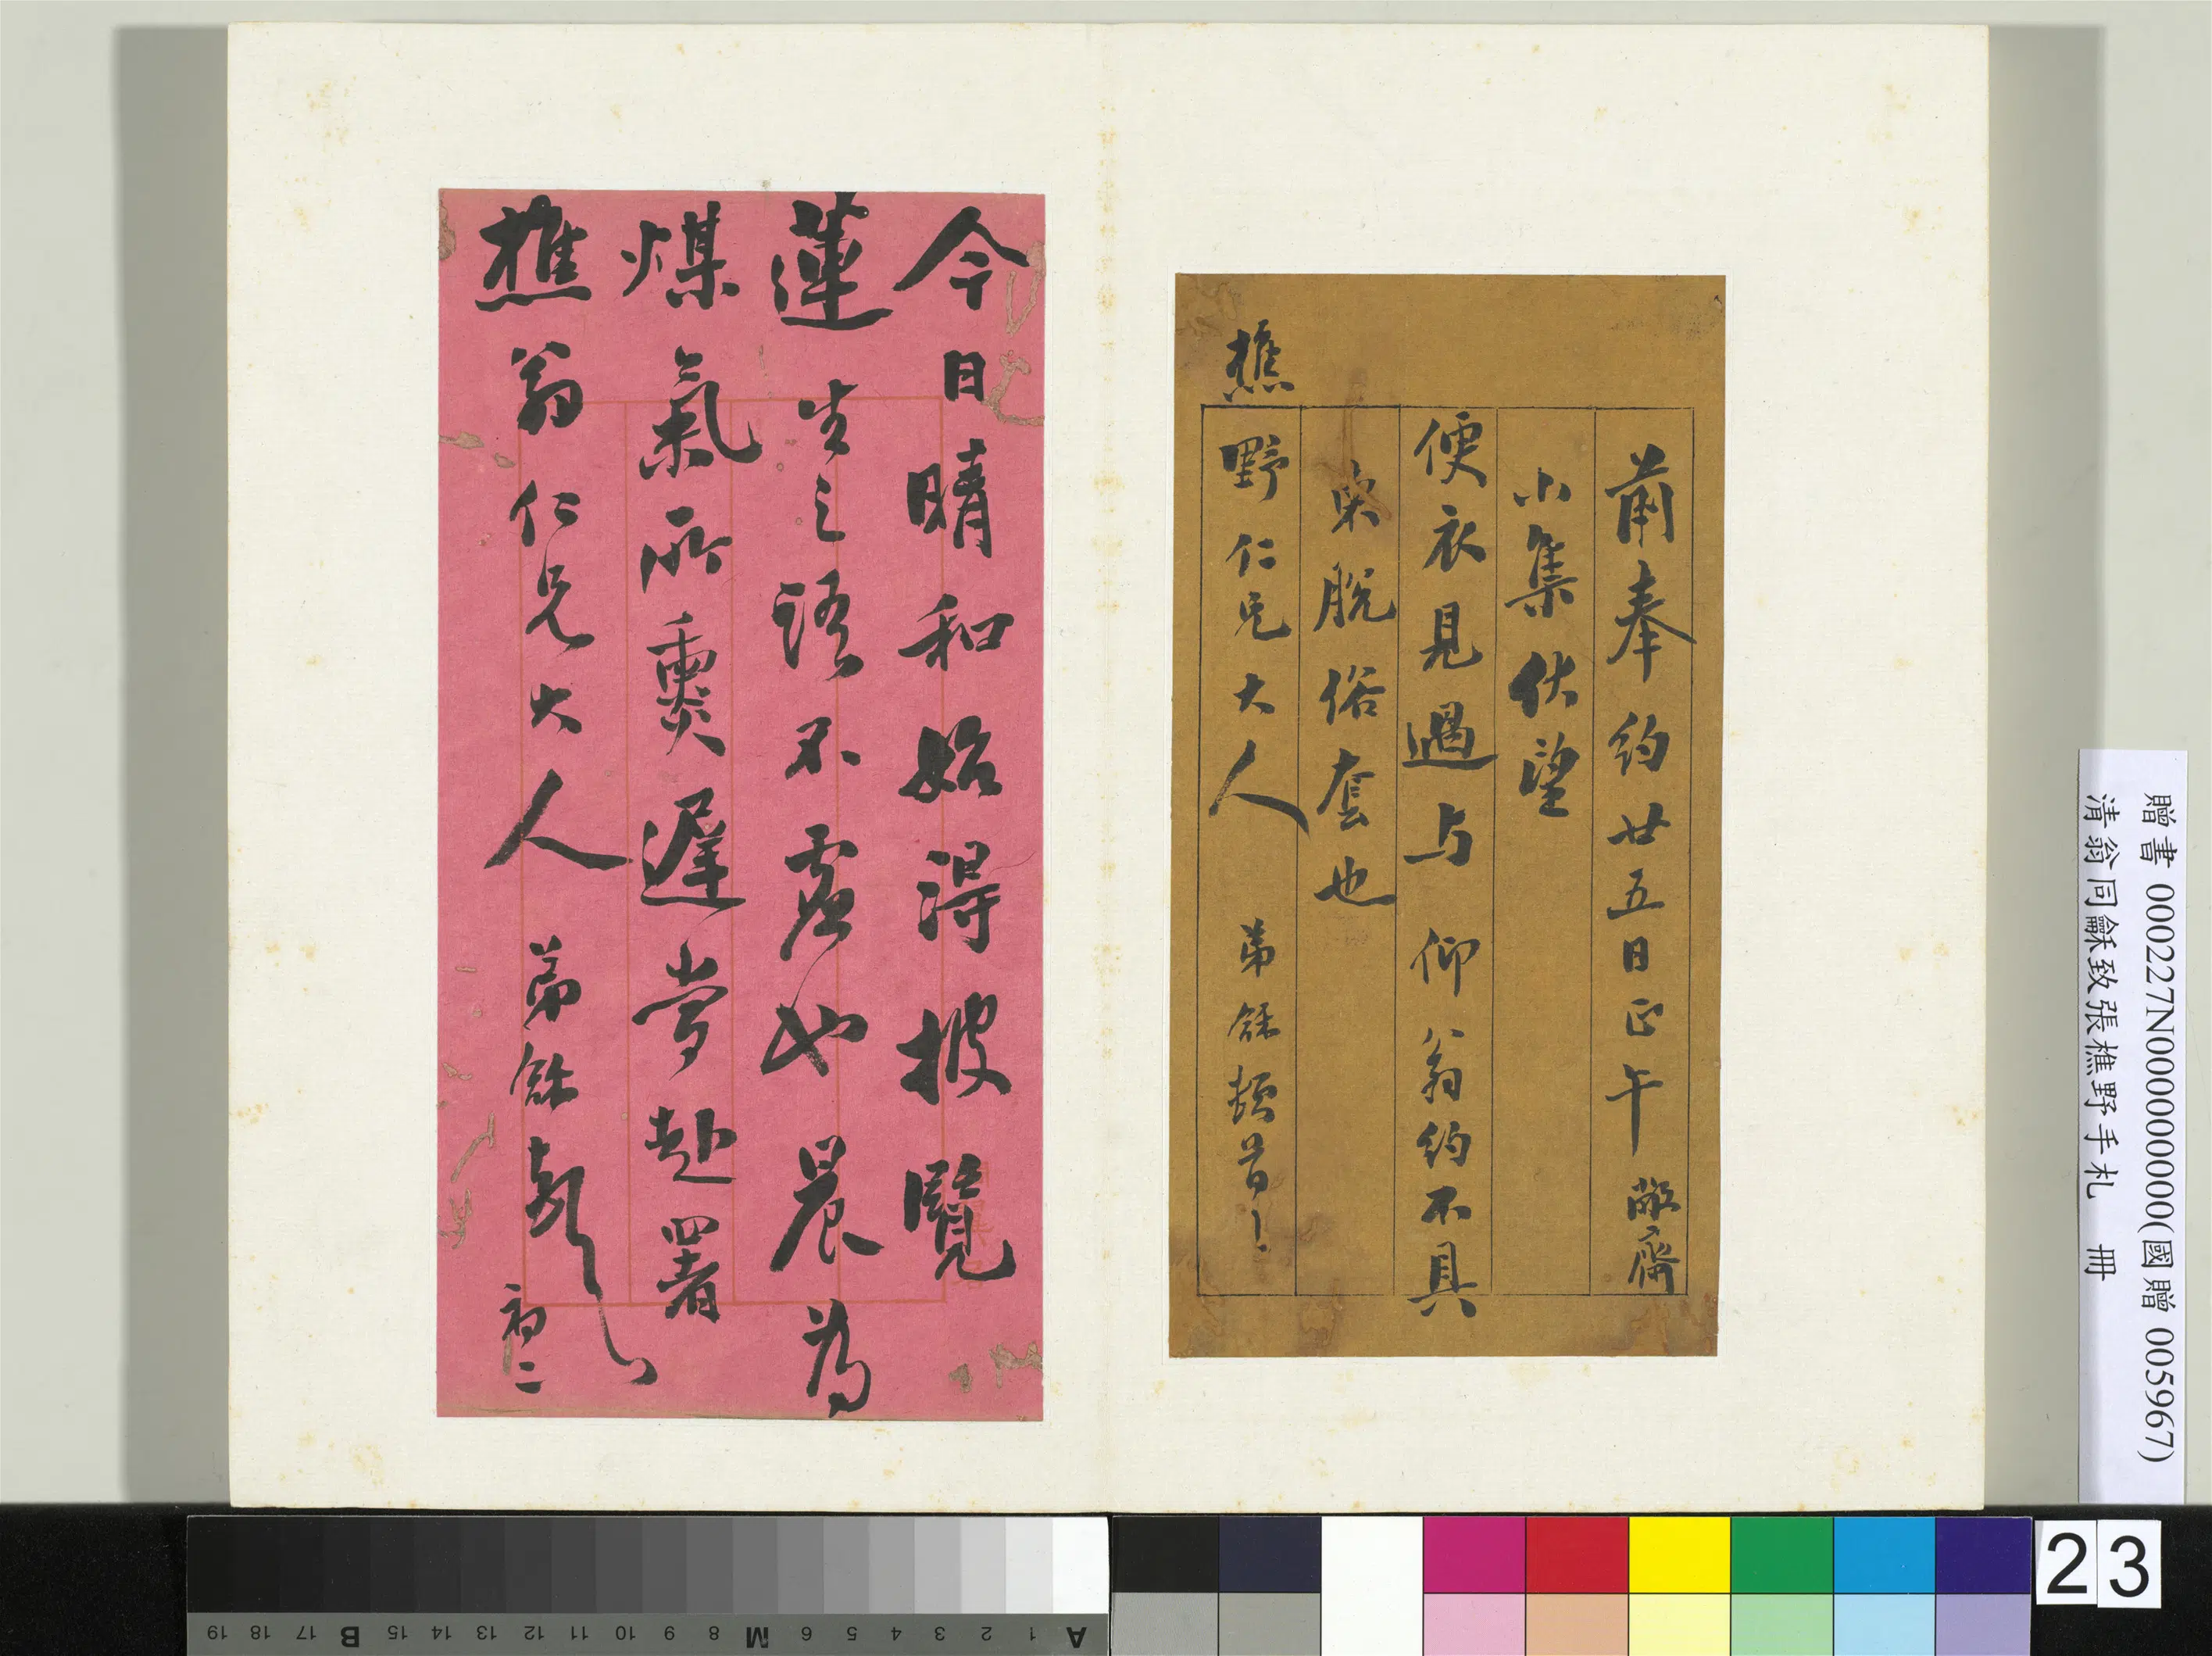 前奉約廿五日正午敝齋
小集伏望
便衣見過与仰翁約不具
柬脫俗套也
樵野仁兄大人 弟龢頓首
今日晴和始得披覽
蓮生之語不虛也晨為
煤氣所熏遲當赴署
樵翁仁兄大人 弟龢頓 初二
贈書 000227N000000000(國贈 005967)
清翁同龢致張樵野手札 冊
23
A 1 2 3 4 5 6 M 8 9 10 11 12 13 14 15 B 17 18 19